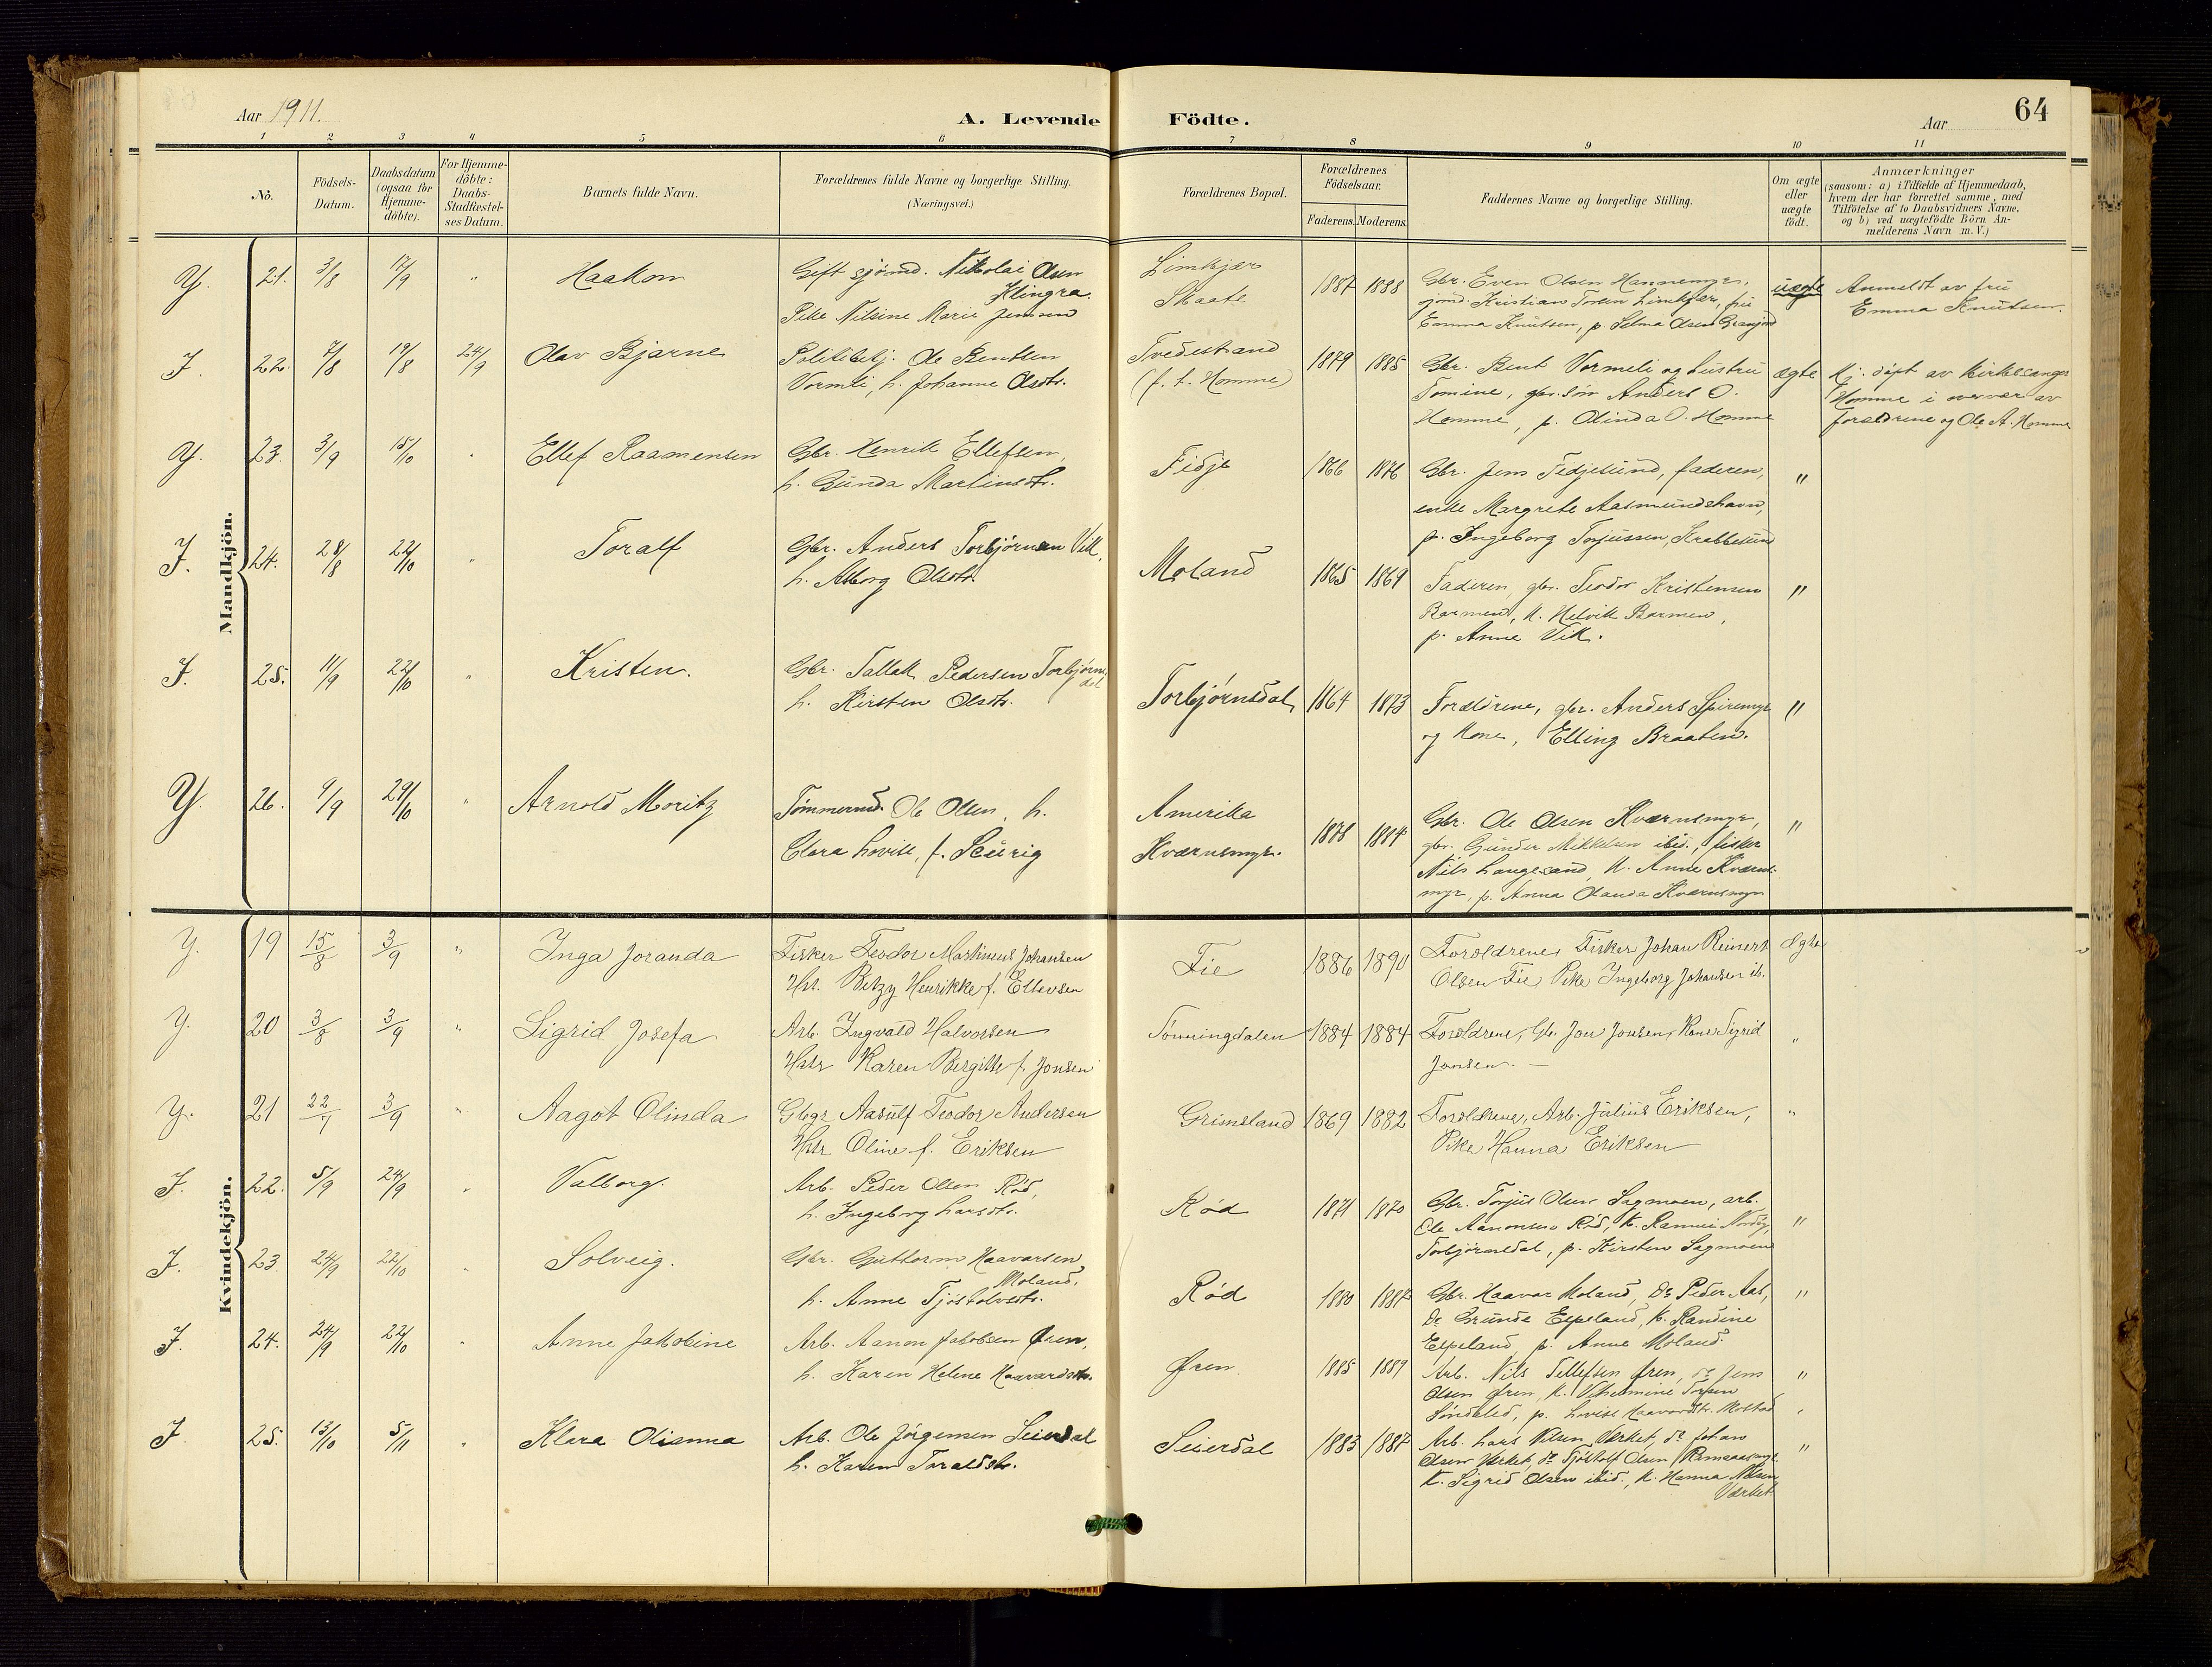 Aar 1911.
A. Levende Födte.
Aar
64
1 2 3 4 5 6 7 8 9 10 11
No.
Födsels-
Datum.
Daabsdatum
(ogsaa for
Hjemme-
döbte).
For Hjemme-
döbte:
Daabs-
Stadfæstel-
ses Datum.
Barnets fulde Navn.
Forældrenes fulde Navne og borgerlige Stilling.
(Næringsvei.)
Forældrenes Bopæl.
Forældrenes
Födselsaar.
Faderens. Moderens.
Faddernes Navne og borgerlige Stilling.
Om ægte
eller
uægte
födt.
Anmærkninger
(saasom: a) i Tilfælde af Hjemmedaab,
hvem der har forrettet samme, med
Tilföielse af to Daabsvidners Navne,
og b) ved uægtefödte Börn An-
melderens Navn m. V.)
Mandkjön.
Y. 21. 3/8 17/9 " Haakon
Gift sjömd. Nikolai Olsen
Klingra.
Pike Nilsine Marie Jensen
Limkjær
Skaate
1887 1888
Gbr. Even Olsen Hannemyr,
sjömd. Kristian Torsen Limkjær, fru
Emma Knutsen, p. Selma Olsen
uægte
Anmeldt av fru
Emma Knutsen.
J. 22. 7/8 19/8 24/9 Olav Bjarne
Politibetj. Ole Bentsen
Vormeli, h. Johanne Olsdtr.
Tvedestrand
(f. t. Homme)
1879 1885
Gbr. Bent Vormeli og hustru
Tomine, gbr. sön Anders O.
Homme, p. Olinda O. Homme
ægte
Hj. döpt av kirkesanger
Homme i overvær av
forældrene og Ole A. Homme
Y. 23. 3/9 15/10 " Ellef Rasmensen
Gbr. Henrik Ellefsen,
h. Gunda Martinsdtr.
Fidje
1866 1876
Gbr. Jens Fidjesund, faderen,
enke Margrete Aasmundshavn,
p. Ingeborg Torjussen, Krabbesund
"
J. 24. 28/8 22/10 " Toralf
Gbr. Anders Torbjörnsen Vik,
h. Aaborg Olsdtr.
Moland
1865 1869
Faderen, gbr. Teodor Kristensen
Barmen, k. Helvik Barmen,
p. Anne Vik.
"
J. 25. 11/9 22/10 " Kristen.
Gbr. Tallak Pedersen Torbjörns
dal
h. Kirsten Olsdtr.
Torbjörnsdal
1864 1873
Forældrene, gbr. Anders Spiremyr
og kone, Elling Braaten.
"
Y. 26. 9/9 29/10 " Arnold Moritz
Tömmermd. Ole Olsen, h.
Clara Lovise, f. Seurig
Amerika
Kværnsmyr.
1878 1884
Gbr. Ole Olsen Kværnsmyr,
gbr. Gunder Mikkelsen ibid., fisker
Nils Langesand, k. Anne Kværns-
myr, p. Anna Olanda Kværnsmyr
"
Kvindekjön.
Y. 19 15/8 3/9 " Inga Joranda
Fisker Teodor Martinius Johansen
Hsr. Betzy Henrikke f. Ellevsen
Fie
1886 1890
Foroldrene, Fisker Johan Reinert
Olsen Fie Pike Ingeborg Johansen ib.
Egte
Y. 20 3/8 3/9 " Sigrid Josefa
Arb. Ingvald Halvorsen
Hstr Karen Bergitte f. Jonsen
Tönningdalen
1884 1884
Foroldrene, Gb. Jon Jonsen, Kone Sigrid
Jonsen. —
"
Y. 21 22/7 3/9 " Aagot Olinda
Gbgr Aasulf Teodor Andersen
Hstr Oline f. Eriksen
Grimsland
1869 1882
Foroldrene, Arb. Julius Eriksen,
Pike Hanna Eriksen
"
J. 22. 5/9 24/9 " Valborg.
Arb. Peder Olsen Röd,
h. Ingeborg Larsdtr.
Röd
1871 1870
Gbr. Torjus Olsen Sagmoen, arb.
Ole Aanonsen Röd, k. Rannei
Torbjörnsdal, p. Kirsten Sagmoen
"
J. 23. 24/9 22/10 " Solveig.
Gbr. Guttorm Haavorsen
Moland,
h. Anne Tjöstolvsdtr.
Röd
1880 1887
Gbr. Haavor Moland, do Peder Aas,
do Grunde Espeland, k. Randine
Espeland, p. Anne Moland.
"
J. 24. 24/9 22/10 " Anne Jakobine
Arb. Aanon Jakobsen Øren,
h. Karen Helene Haavardsdtr.
Øren
1885 1889
Arb. Nils Tellefsen Øren, do Jens
Olsen Øren, k. Vilhelmine Torsen
Söndeled, p. Lovise Haavordsdtr. Molstad
"
J. 25. 13/10 5/11 " Klara Olianna
Arb. Ole Jörgensen Seierdal
h. Karen Toraldsdtr.
Seierdal
1883 1887
Arb. Lars Nilsen Verket, do Johan
Olsen Verket, do Tjöstolf Olsen Ramsaasmyr
k. Sigrid Olsen ibid., k. Hanna Nilsen
Verket
"